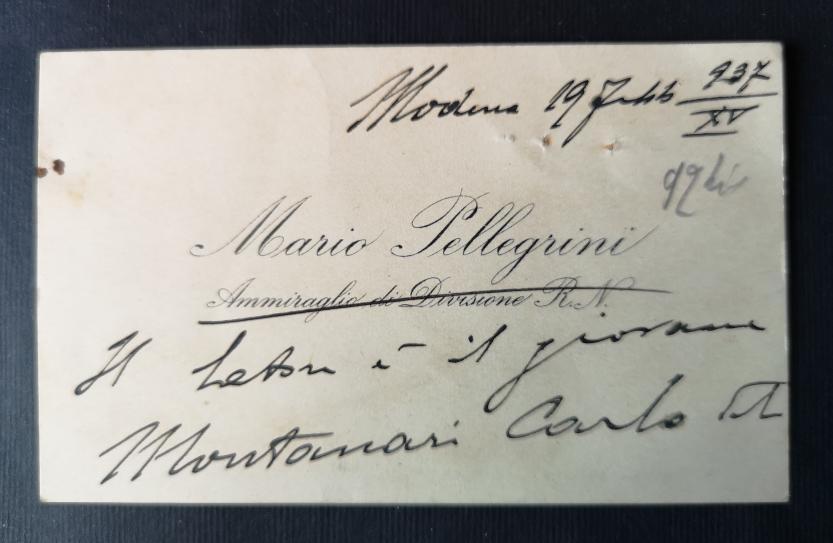 Modena 19 Febb 937
XV
Mario Pellegrini
Ammiraglio di Divisione R. N.
Il è il giovane
Montanari Carlo